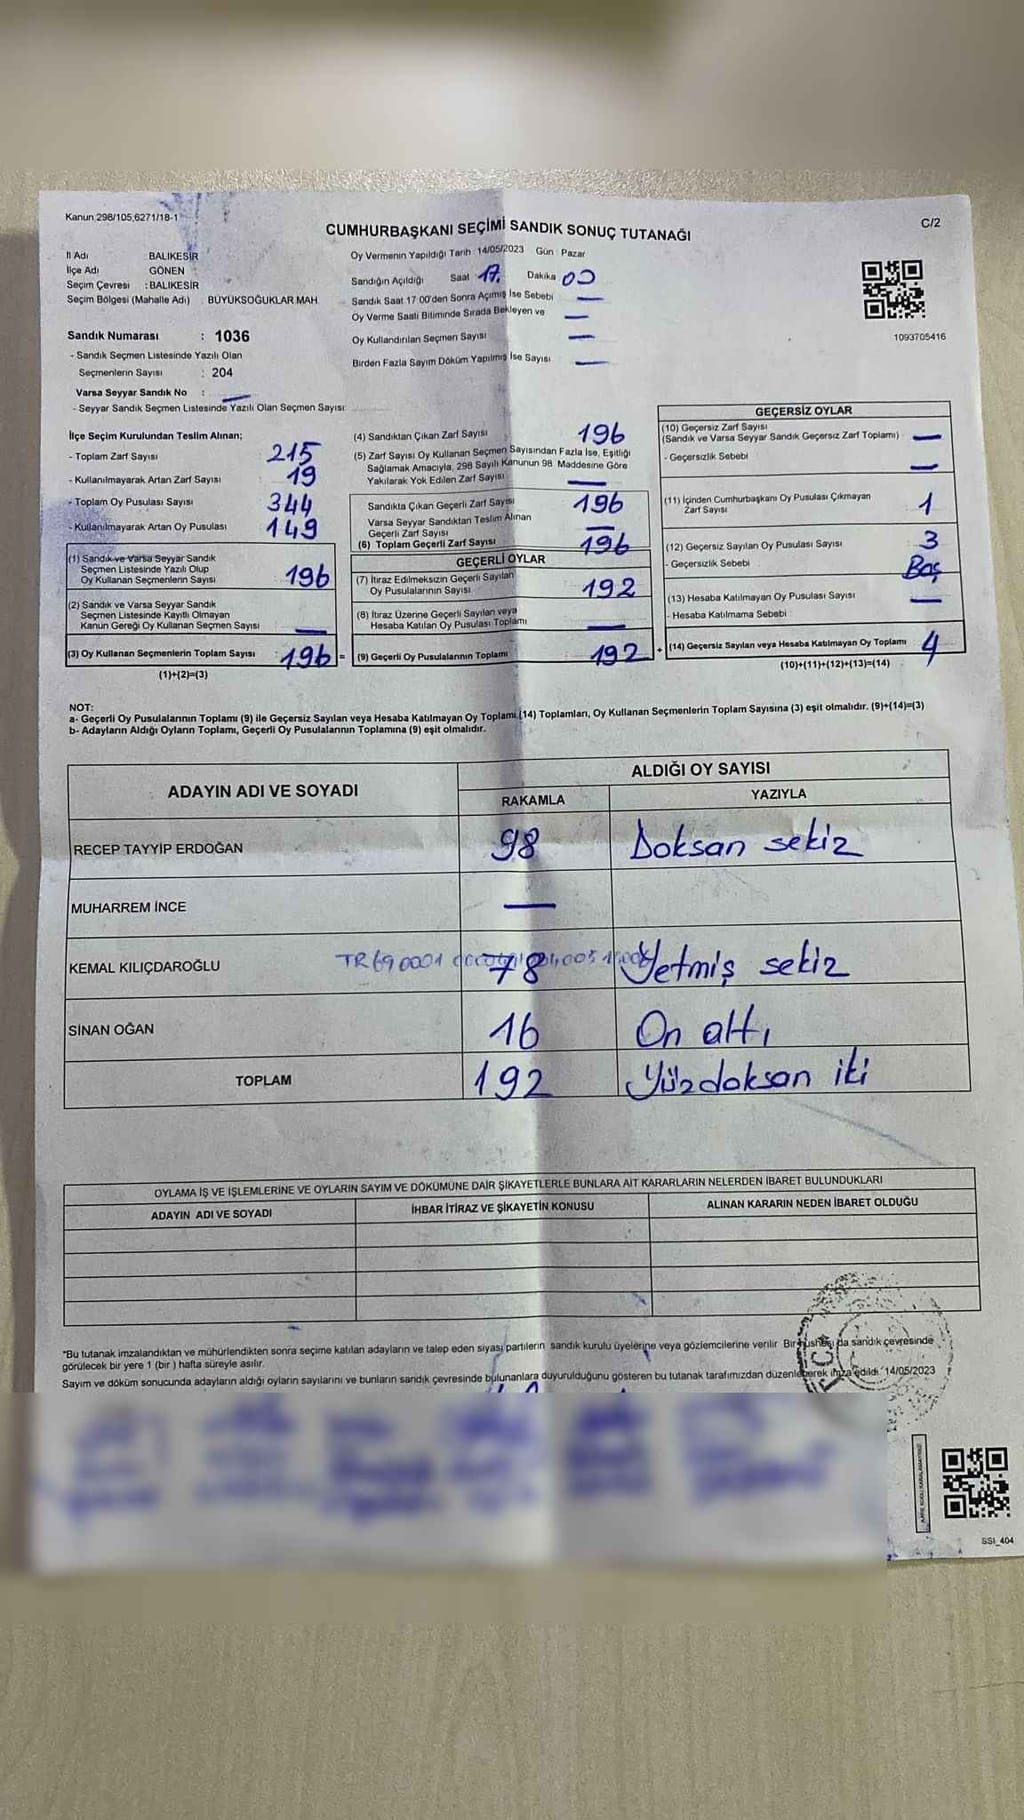 Kanun 298/105,6271/18-1
C/2
CUMHURBAŞKANI SEÇİMİ SANDIK SONUÇ TUTANAĞI
İl Adı BALIKESİR
İlçe Adı GÖNEN
Seçim Çevresi : BALIKESİR
Seçim Bölgesi (Mahalle Adı) BÜYÜKSOĞUKLAR MAH.
Oy Vermenin Yapıldığı Tarih 14/05/2023 Gün Pazar
Sandığın Açıldığı Saat 17. Dakika 00
Sandık Saat 17 00'den Sonra Açımış İse Sebebi —
Oy Verme Saati Bitiminde Sırada Bekleyen ve —
Oy Kullandırılan Seçmen Sayısı —
Birden Fazla Sayım Döküm Yapılmış İse Sayısı —
1093705416
Sandık Numarası : 1036
- Sandık Seçmen Listesinde Yazılı Olan
Seçmenlerin Sayısı : 204
Varsa Seyyar Sandık No : —
- Seyyar Sandık Seçmen Listesinde Yazılı Olan Seçmen Sayısı:
İlçe Seçim Kurulundan Teslim Alınan;
- Toplam Zarf Sayısı 215
- Kullanılmayarak Artan Zarf Sayısı 19
- Toplam Oy Pusulası Sayısı 344
- Kullanılmayarak Artan Oy Pusulası 149
(1) Sandık ve Varsa Seyyar Sandık
Seçmen Listesinde Yazılı Olup
Oy Kullanan Seçmenlerin Sayısı 196
(2) Sandık ve Varsa Seyyar Sandık
Seçmen Listesinde Kayıtlı Olmayan
Kanun Gereği Oy Kullanan Seçmen Sayısı —
(3) Oy Kullanan Seçmenlerin Toplam Sayısı 196 =
(1)+(2)=(3)
(4) Sandıktan Çıkan Zarf Sayısı 196
(5) Zarf Sayısı Oy Kullanan Seçmen Sayısından Fazla İse, Eşitliği
Sağlamak Amacıyla, 298 Sayılı Kanunun 98. Maddesine Göre
Yakılarak Yok Edilen Zarf Sayısı —
Sandıkta Çıkan Geçerli Zarf Sayısı 196
Varsa Seyyar Sandıktan Teslim Alınan
Geçerli Zarf Sayısı —
(6) Toplam Geçerli Zarf Sayısı 196
GEÇERLİ OYLAR
(7) İtiraz Edilmeksizin Geçerli Sayılan
Oy Pusulalarının Sayısı 192
(8) İtiraz Üzerine Geçerli Sayılan veya
Hesaba Katılan Oy Pusulası Toplamı —
(9) Geçerli Oy Pusulalarının Toplamı 192 +
GEÇERSİZ OYLAR
(10) Geçersiz Zarf Sayısı
(Sandık ve Varsa Seyyar Sandık Geçersiz Zarf Toplamı) —
- Geçersizlik Sebebi —
(11) İçinden Cumhurbaşkanı Oy Pusulası Çıkmayan
Zarf Sayısı 1
(12) Geçersiz Sayılan Oy Pusulası Sayısı 3
- Geçersizlik Sebebi Boş
(13) Hesaba Katılmayan Oy Pusulası Sayısı —
- Hesaba Katılmama Sebebi
(14) Geçersiz Sayılan veya Hesaba Katılmayan Oy Toplamı 4
(10)+(11)+(12)+(13)=(14)
NOT:
a- Geçerli Oy Pusulalarının Toplamı (9) ile Geçersiz Sayılan veya Hesaba Katılmayan Oy Toplamı (14) Toplamları, Oy Kullanan Seçmenlerin Toplam Sayısına (3) eşit olmalıdır. (9)+(14)=(3)
b- Adayların Aldığı Oyların Toplamı, Geçerli Oy Pusulalarının Toplamına (9) eşit olmalıdır.
ADAYIN ADI VE SOYADI
ALDIĞI OY SAYISI
RAKAMLA YAZIYLA
RECEP TAYYİP ERDOĞAN 98 Doksan sekiz
MUHARREM İNCE —
KEMAL KILIÇDAROĞLU 78 Yetmiş sekiz
SİNAN OĞAN 16 On altı
TOPLAM 192 Yüzdoksan iki
OYLAMA İŞ VE İŞLEMLERİNE VE OYLARIN SAYIM VE DÖKÜMÜNE DAİR ŞİKAYETLERLE BUNLARA AİT KARARLARIN NELERDEN İBARET BULUNDUKLARI
ADAYIN ADI VE SOYADI İHBAR İTİRAZ VE ŞİKAYETİN KONUSU ALINAN KARARIN NEDEN İBARET OLDUĞU
*Bu tutanak imzalandıktan ve mühürlendikten sonra seçime katılan adayların ve talep eden siyasi partilerin sandık kurulu üyelerine veya gözlemcilerine verilir. Bir nüshası da sandık çevresinde
görülecek bir yere 1 (bir) hafta süreyle asılır.
Sayım ve döküm sonucunda adayların aldığı oyların sayılarını ve bunların sandık çevresinde bulunanlara duyurulduğunu gösteren bu tutanak tarafımızdan düzenlenerek imza edildi. 14/05/2023
SSI_404